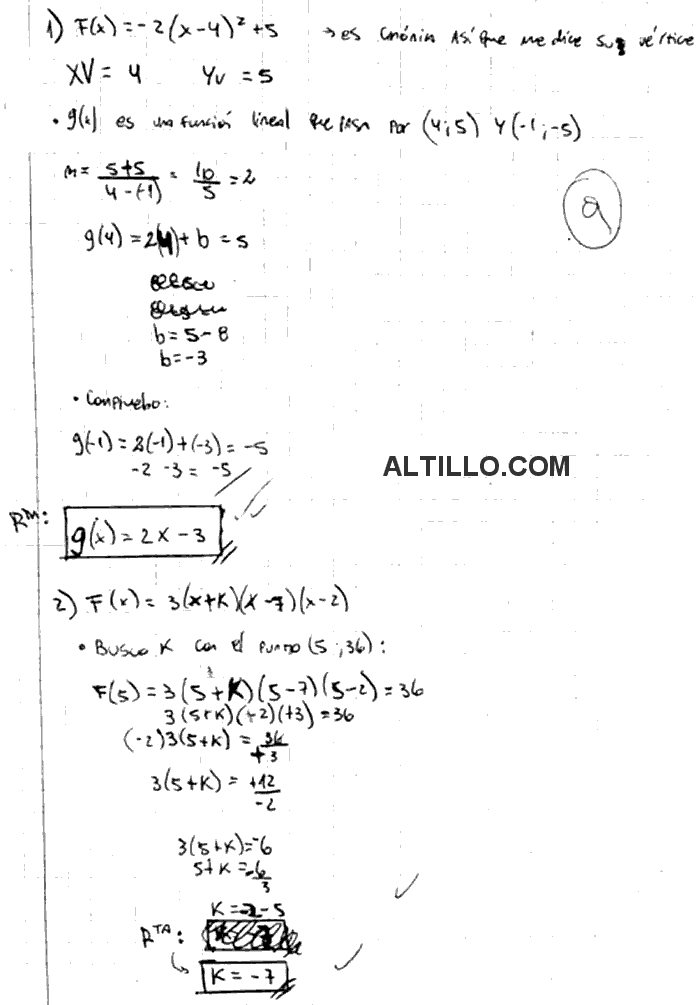 1) F(x) = -2(x-4)² + 5 → es canónica Así que me dice su vértice
XV = 4 Yv = 5
• g(x) es una función lineal que pasa por (4;5) Y (-1;-5)
m = \frac{5+5}{4-(-1)} = \frac{10}{5} = 2
9
g(4) = 2(4) + b = 5
b = 5 - 8
b = -3
• Compruebo:
g(-1) = 2(-1) + (-3) = -5
-2 -3 = -5
ALTILLO.COM
Rta:
g(x) = 2x - 3
2) F(x) = 3(x+K)(x-7)(x-2)
• Busco K con el punto (5;36):
F(5) = 3(5+K)(5-7)(5-2) = 36
3(5+K)(-2)(+3) = 36
(-2)3(5+K) = \frac{36}{+3}
3(5+K) = \frac{+12}{-2}
3(5+K) = -6
5+K = \frac{-6}{3}
K = -2 - 5
RTA:
K = -7